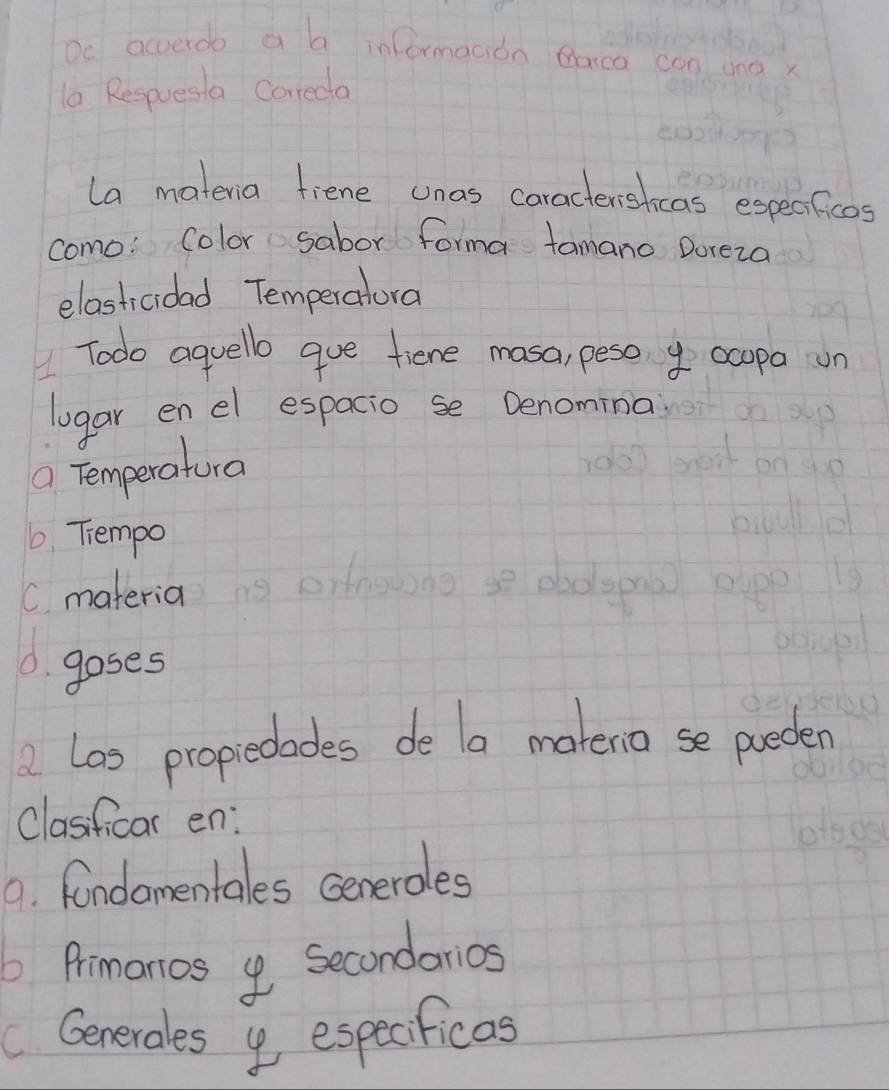 De acuerdo a la información marca con una x
la Respuesta Correcta
La materia tiene unas caracteristicas especificas
como: Color sabor forma tamano Dureza
elasticidad Temperatura
1 Todo aquello que tiene masa, peso y ocupa un
lugar en el espacio se Denomina
a Temperatura
b. Tiempo
c. materia
d. gases
2 Las propiedades de la materia se pueden
Clasificar en:
a. fundamentales Generales
b Primarios y Secundarios
c. Generales y especificas